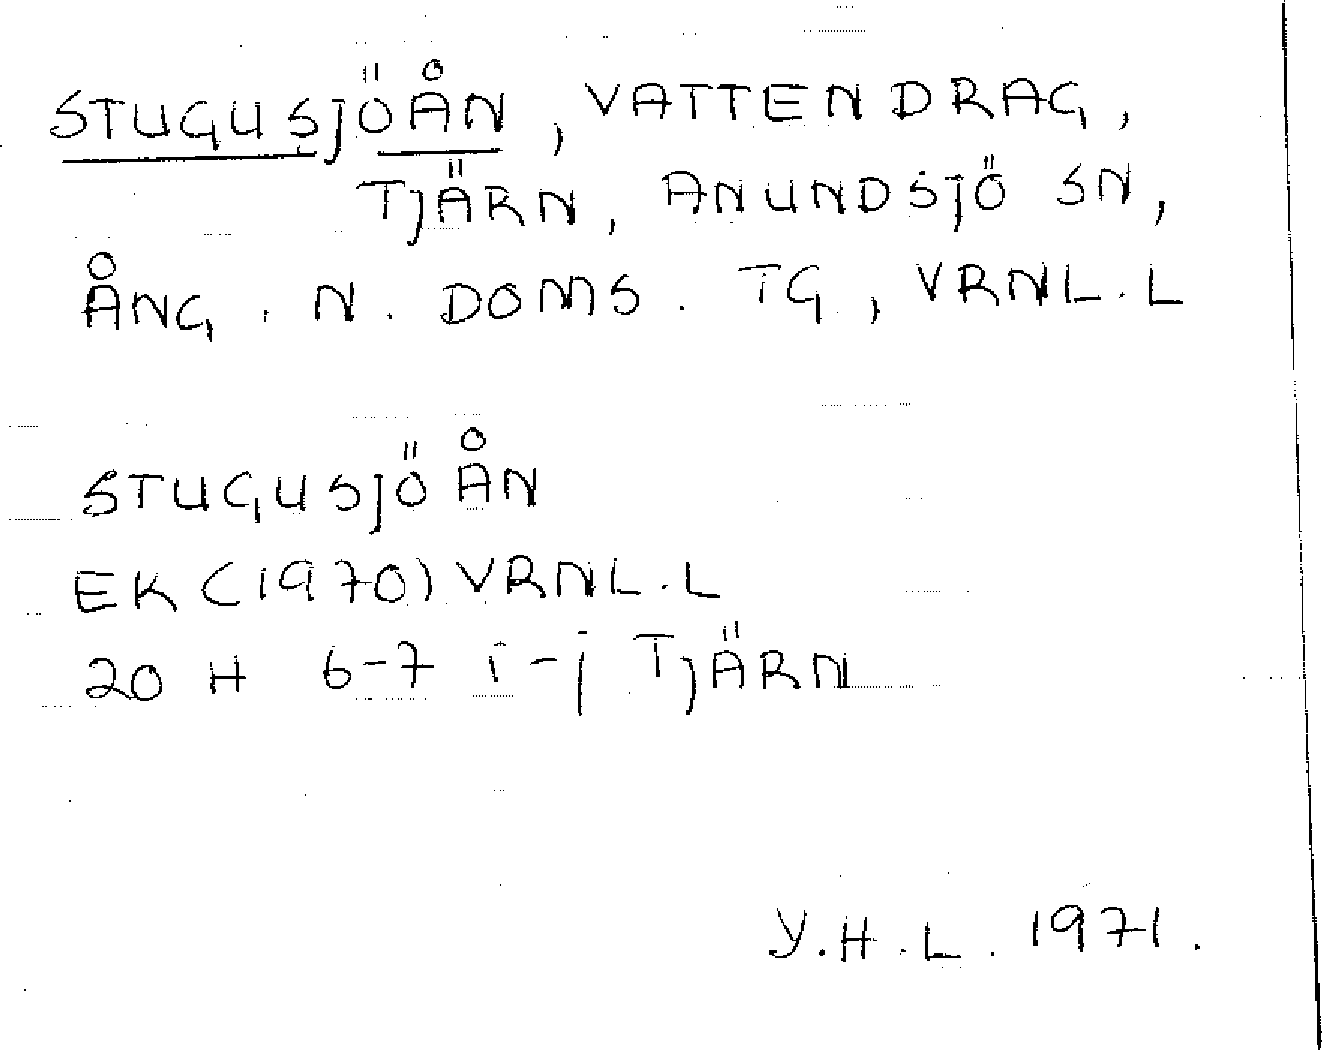 STUGUSJÖÅN, VATTENDRAG,
TJÄRN, ANUNDSJÖ SN,
ÅNG. N. DOMS. TG, VRNL.L
STUGUSJÖÅN
EK (1970) VRNL.L
20 H 6-7 i-j TJÄRN
Y.H.L. 1971.